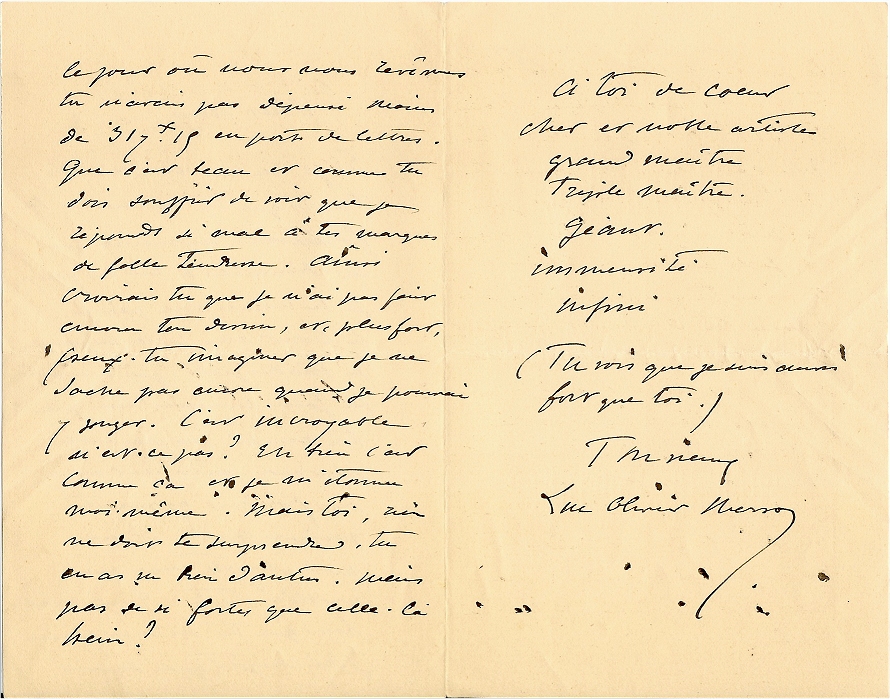 le jour où nous nous revîmes
tu n'avais pas dépensé moins
de 317 f. 15 en ports de lettres.
Que c'est beau et comme tu
dois souffrir de voir que je
réponds si mal à tes marques
de folle tendresse. Ainsi
croirais tu que je n'ai pas fait
encore ton dessin, et, plus fort,
peux-tu imaginer que je ne
sache pas encore quand je pourrai
y songer. C'est incroyable
n'est-ce pas? Eh bien c'est
comme ça et je m'étonne
moi-même. Mais toi, rien
ne doit te surprendre. tu
en as vu bien d'autres. mais
pas de si fortes que celle-là
hein?
à toi de coeur
cher et noble artiste
grand maître
Triple maître.
Géant.
immensité
infini
(Tu vois que je suis aussi
fort que toi.)
Ton vieux
Luc Olivier Merson